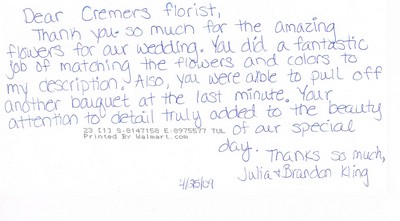 Dear Cremers florist,
Thank you so much for the amazing
flowers for our wedding. You did a fantastic
job of matching the flowers and colors to
my description. Also, you were able to pull off
another bouquet at the last minute. Your
attention to detail truly added to the beauty
23 [1] S-8147158 E:8975577 TUL of our special
Printed By Walmart.com
day. Thanks so much,
Julia & Brandon Kling